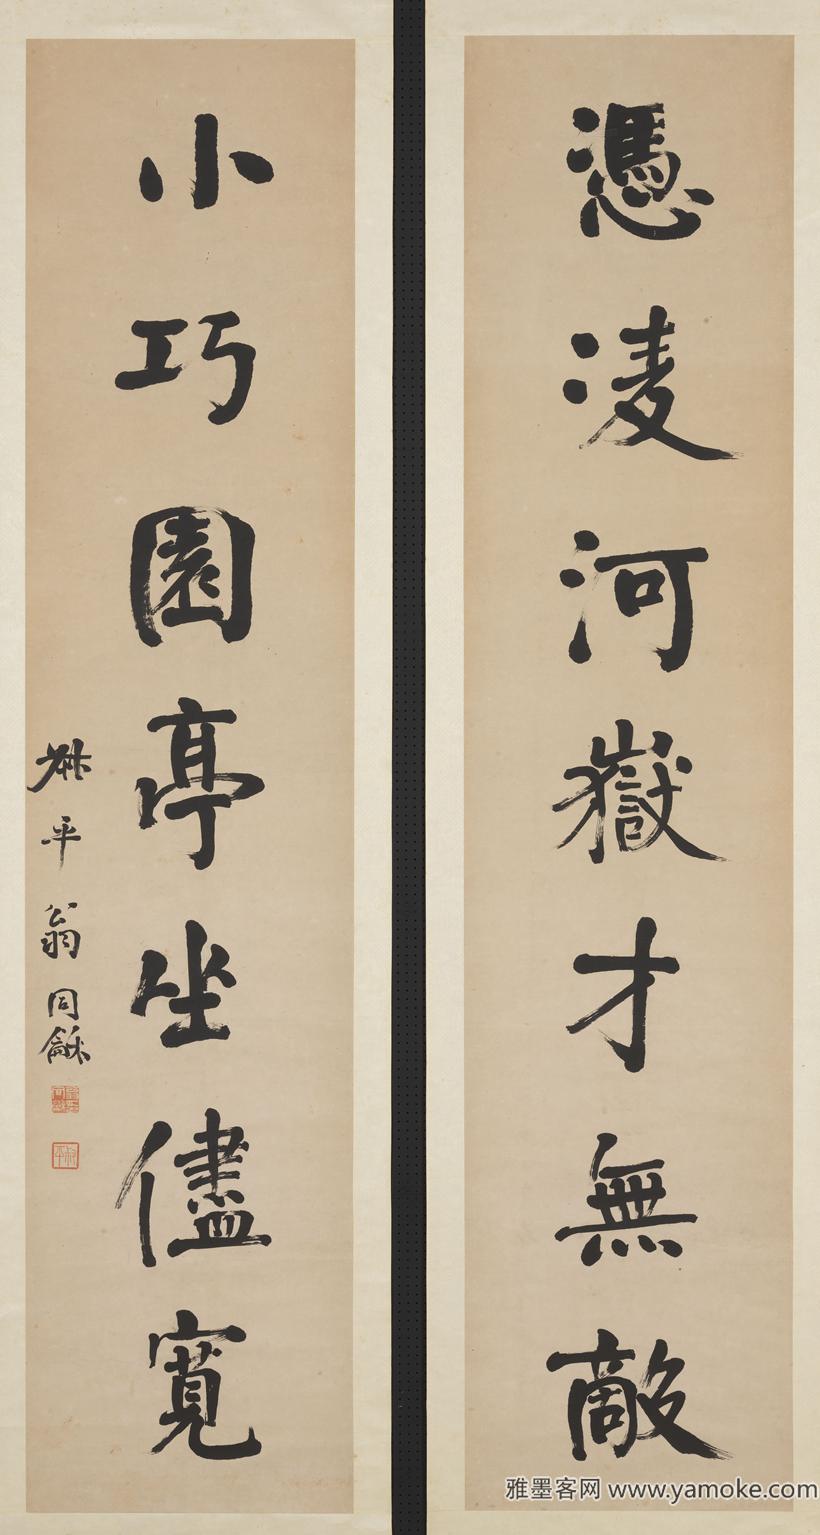 憑凌河嶽才無敵
小巧園亭坐儘寬
叔平翁同龢
叔平
雅墨客网 www.yamoke.com